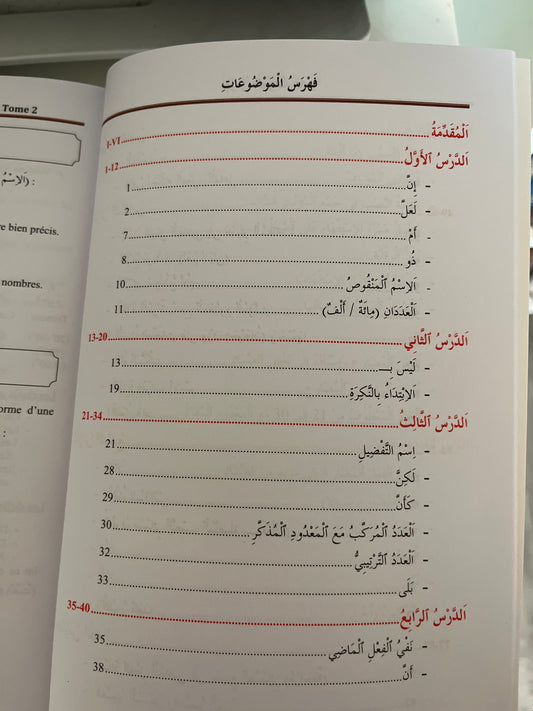 Tome 2
re bien précis.
nombres.
orme d'une
:
فَهْرَسُ الْمَوْضُوعَاتِ
اَلْمُقَدِّمَةُ I-VI
اَلدَّرْسُ ٱلْأَوَّلُ 1-12
- إِنَّ 1
- لَعَلَّ 2
- أَمْ 7
- ذُو 8
- اَلِاسْمُ ٱلْمَنْقُوصُ 10
- اَلْعَدَدَانِ (مِائَةٌ / أَلْفٌ) 11
اَلدَّرْسُ ٱلثَّانِي 13-20
- لَيْسَ بِـــ 13
- اَلِابْتِدَاءُ بِالنَّكِرَةِ 19
اَلدَّرْسُ ٱلثَّالِثُ 21-34
- اِسْمُ التَّفْضِيلِ 21
- لَكِنَّ 28
- كَأَنَّ 29
- اَلْعَدَدُ ٱلْمُرَكَّبُ مَعَ ٱلْمَعْدُودِ ٱلْمُذَكَّرِ 30
- اَلْعَدَدُ ٱلتَّرْتِيبِيُّ 32
- بَلَى 33
اَلدَّرْسُ ٱلرَّابِعُ 35-40
- نَفْيُ ٱلْفِعْلِ ٱلْمَاضِي 35
- أَنَّ 38